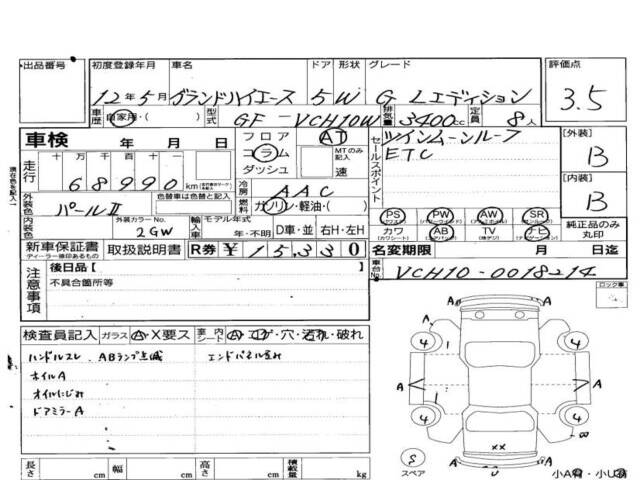 出品番号 初度登録年月 車名 ドア 形状 グレード 評価点
12年5月 グランドハイエース 5 W G Lエディション 3.5
車歴 自家用・( ) 型式 GF-VCH10W 排気量 3400cc 定員 8人
車検 年 月 日
フロア AT
コラム MTのみ記入
ダッシュ 速
セールスポイント ツインムーンルーフ
ETC
[外装] B
[内装] B
走行 十万 万 千 百 十
68990 km
冷房 AAC
燃料 ガソリン・軽油・( )
外装色 パールⅡ 色替車は色替と記入
内装色 外装カラーNo. 2GW
輸入車 モデル年式 年・不明 D車・並 右H・左H
PS PW AW SR
カワ AB TV ナビ 純正品のみ丸印
新車保証書 取扱説明書 R券 ¥ 15,330
ディーラー捺印あるもの
名変期限 月 日迄
車台No. VCH10-0018214
注意事項 後日品[ ]
不具合箇所等
ロック車
検査員記入 ガラス A・X要ス 室内シート A・エロ・穴・汚れ・破れ
ハンドルスレ ABランプ点滅 エンドパネル歪み
ホイルA
オイルにじみ
ドアミラーA
4 4
4 4
A A A
S スペア
長さ cm 幅 cm 高さ cm 積載量 kg
小A有・小U有